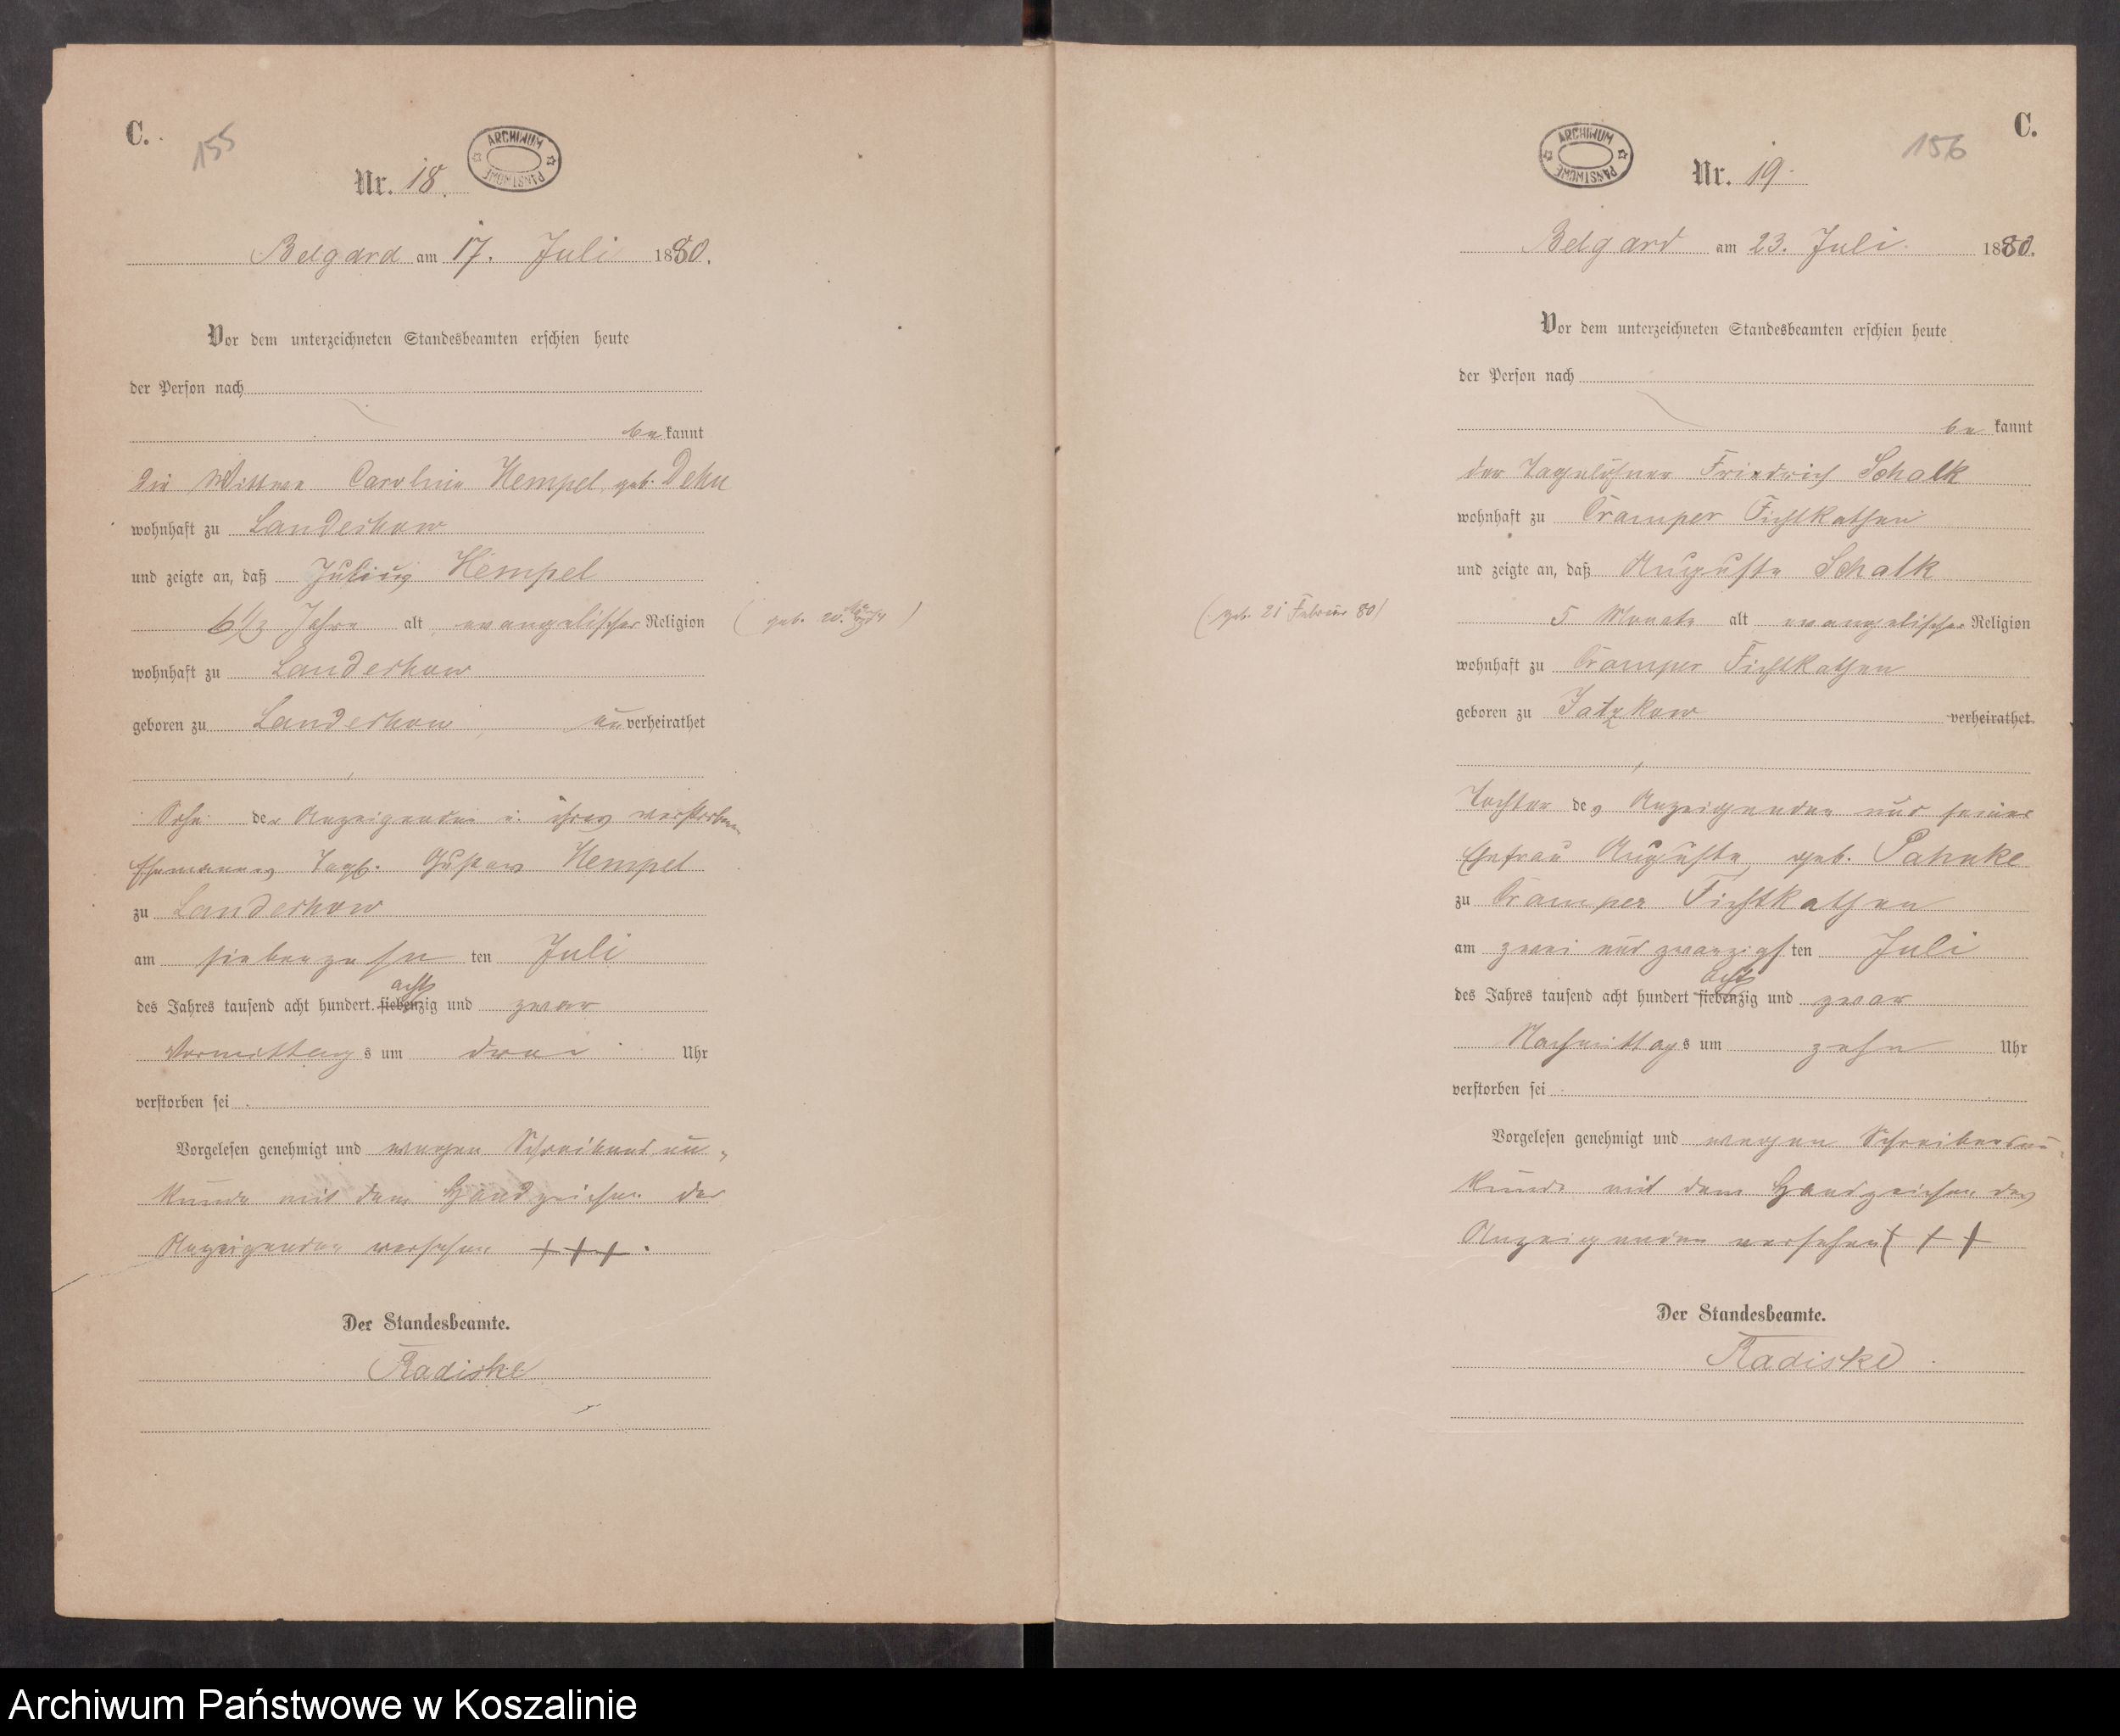 C.
155
ARCHIWUM PAŃSTWOWE
Nr. 18.
Belgard am 17. Juli 1880.
Vor dem unterzeichneten Standesbeamten erschien heute
der Person nach
bekannt
die Wittwe Caroline Hempel, geb. Dehn
wohnhaft zu Landechow
und zeigte an, daß Julius Hempel
6 1/3 Jahre alt, evangelischer Religion
(geb. 20.
wohnhaft zu Landechow
geboren zu Landechow, unverheirathet
Sohn der Anzeigenden u. ihres verstorbenen
Ehemannes Tagl. Gustav Hempel
zu Landechow
am siebenzehn ten Juli
acht
des Jahres tausend acht hundert siebenzig und zwar
Vormittags um drei Uhr
verstorben sei.
Vorgelesen genehmigt und wegen Schreibensun-
kunde mit dem Handzeichen der
Anzeigenden versehen + + + .
Der Standesbeamte.
Radiske
C.
156
ARCHIWUM PAŃSTWOWE
Nr. 19.
Belgard am 23. Juli 1880.
Vor dem unterzeichneten Standesbeamten erschien heute
der Person nach
bekannt
der Tagelöhner Friedrich Schalk
wohnhaft zu Cramper Fichtkathen
und zeigte an, daß Auguste Schalk
(geb. 21 Februar 80)
5 Monate alt evangelischer Religion
wohnhaft zu Cramper Fichtkathen
geboren zu Jatzkow verheirathet
Tochter des Anzeigenden und seiner
Ehefrau Auguste, geb. Pahnke
zu Cramper Fichtkathen
am zwei und zwanzigsten Juli
acht
des Jahres tausend acht hundert siebenzig und zwar
Nachmittags um zehn Uhr
verstorben sei.
Vorgelesen genehmigt und wegen Schreibensun-
kunde mit dem Handzeichen des
Anzeigenden versehen + + +
Der Standesbeamte.
Radiske
Archiwum Państwowe w Koszalinie